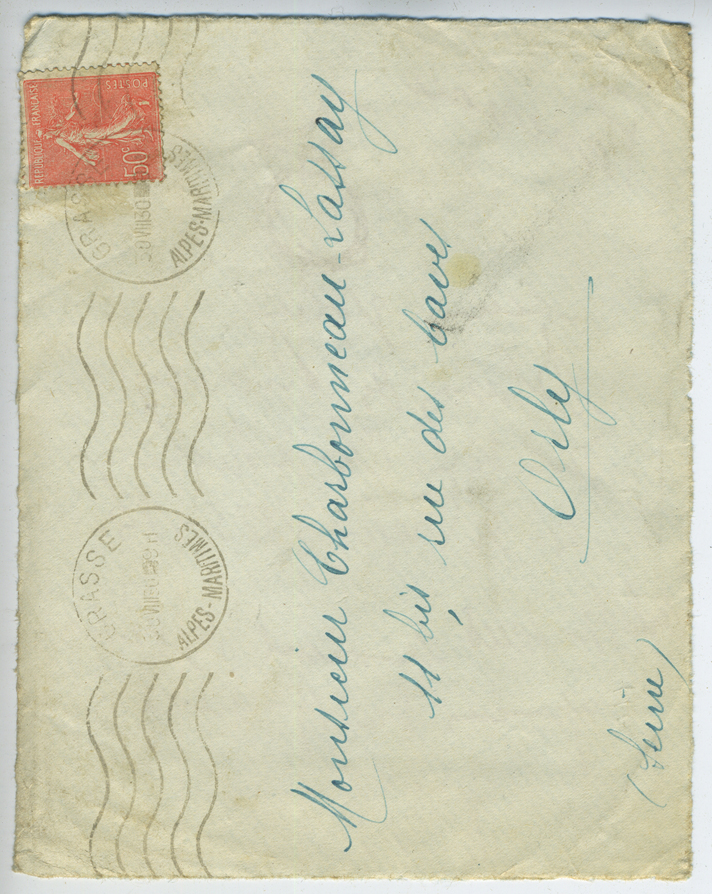 RÉPUBLIQUE FRANÇAISE
POSTES
50c
GRASSE
30 VIII 30
ALPES-MARITIMES
GRASSE
ALPES-MARITIMES
Monsieur Charbonneau-Lassay
11 bis rue des
Orly
(Seine)